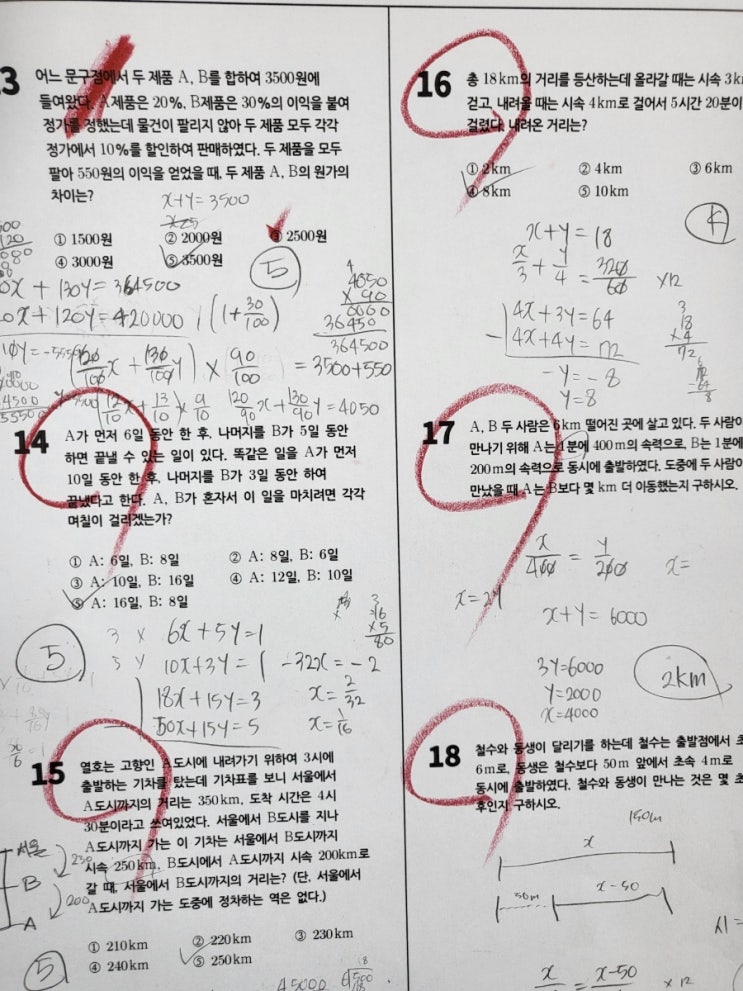 3 어느 문구점에서 두 제품 A, B를 합하여 3500원에
들여왔다. A제품은 20%, B제품은 30%의 이익을 붙여
정가를 정했는데 물건이 팔리지 않아 두 제품 모두 각각
정가에서 10%를 할인하여 판매하였다. 두 제품을 모두
팔아 550원의 이익을 얻었을 때, 두 제품 A, B의 원가의
차이는?
x+y=3500
① 1500원 ② 2000원 ③ 2500원
④ 3000원 ⑤ 3500원
5
4050
× 90
0000
36450
364500
x + 130y = 364500
x + 120y = 420000
(1+30/100)
(120/100 x + 130/100 y) × 90/100 = 3500+550
(12/10 x + 13/10) × 9/10
120/90 x + 130/90 y = 4050
14 A가 먼저 6일 동안 한 후, 나머지를 B가 5일 동안
하면 끝낼 수 있는 일이 있다. 똑같은 일을 A가 먼저
10일 동안 한 후, 나머지를 B가 3일 동안 하여
끝냈다고 한다. A, B가 혼자서 이 일을 마치려면 각각
며칠이 걸리겠는가?
① A: 6일, B: 8일 ② A: 8일, B: 6일
③ A: 10일, B: 16일 ④ A: 12일, B: 10일
⑤ A: 16일, B: 8일
5
3 × 6x+5y=1
10x+3y=1
-32x=-2
18x+15y=3
x=2/32
50x+15y=5
x=1/16
15 열호는 고향인 A도시에 내려가기 위하여 3시에
출발하는 기차를 탔는데 기차표를 보니 서울에서
A도시까지의 거리는 350km, 도착 시간은 4시
30분이라고 쓰여있었다. 서울에서 B도시를 지나
A도시까지 가는 이 기차는 서울에서 B도시까지
시속 250km, B도시에서 A도시까지 시속 200km로
갈 때, 서울에서 B도시까지의 거리는? (단, 서울에서
A도시까지 가는 도중에 정차하는 역은 없다.)
서울
B
A
200
① 210km ② 220km ③ 230km
④ 240km ⑤ 250km
5
45000
16 총 18km의 거리를 등산하는데 올라갈 때는 시속 3k
걷고, 내려올 때는 시속 4km로 걸어서 5시간 20분이
걸렸다. 내려온 거리는?
① 2km ② 4km ③ 6km
④ 8km ⑤ 10km
4
x+y=18
x/3 + y/4 = 320/60 ×12
4x+3y=64
4x+4y=72
-y=-8
y=8
18
×4
72
17 A, B 두 사람은 6km 떨어진 곳에 살고 있다. 두 사람이
만나기 위해 A는 1분에 400m의 속력으로, B는 1분에
200m의 속력으로 동시에 출발하였다. 도중에 두 사람이
만났을 때 A는 B보다 몇 km 더 이동했는지 구하시오.
x/400 = y/200
x=
x=2y
x+y=6000
3y=6000
y=2000
x=4000
2km
18 철수와 동생이 달리기를 하는데 철수는 출발점에서 초
6m로, 동생은 철수보다 50m 앞에서 초속 4m로
동시에 출발하였다. 철수와 동생이 만나는 것은 몇 초
후인지 구하시오.
150m
x
50m
x-50
x
x-50
×12